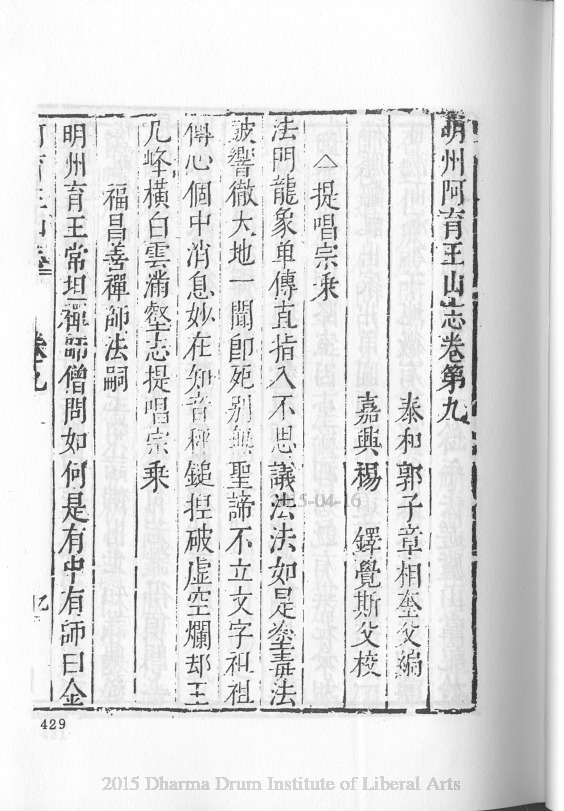 明州阿育王山志卷第九
泰和郭子章相奎父編
嘉興禓 鐸覺斯父校
△提唱宗乘
法門龍象单傳直指入不思議法法如是塗毒法
皷響徹大地一聞卽死别無聖諦不立文字祖祖
傳心個中消息妙在知音秤鎚揑破虛空爛却王
几峰橫白雲滿壑志提唱宗乘
福昌善禪師法嗣
明州育王常坦禪師僧問如何是有中有師曰金
阿育王山志 卷九
2015-04-16
429
2015 Dharma Drum Institute of Liberal Arts